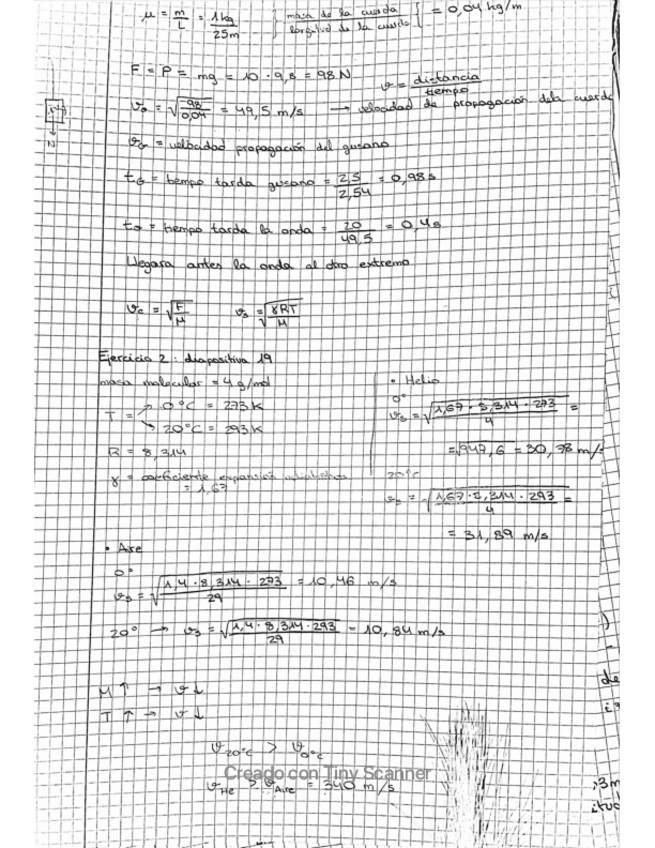 μ = m/L = 1kg/25m } masa de la cuerda / longitud de la cuerda { = 0,04 kg/m
F = P = mg = 10 · 9,8 = 98 N
v = distancia/tiempo
v₀ = √(98/0,04) = 49,5 m/s → velocidad de propagación de la cuerda
v_G = velocidad propagación del gusano
t_G = tiempo tarda gusano = 2,5/2,54 = 0,98s
t₀ = tiempo tarda la onda = 20/49,5 = 0,4s
Llegara antes la onda al otro extremo
v_c = √(F/μ) v_s = √(γRT/M)
Ejercicio 2: diapositiva 19
masa molecular = 4 g/mol
T = ↗ 0°C = 273K
↘ 20°C = 293K
R = 8,314
γ = coeficiente expansión adiabática
= 1,67
• Helio
0°
v_s = √(1,67 · 8,314 · 273/4) =
= √947,6 = 30,78 m/s
20°C
v_s = √(1,67 · 8,314 · 293/4) =
= 31,89 m/s
• Aire
0°
v_s = √(1,4 · 8,314 · 273/29) = 10,46 m/s
20° → v_s = √(1,4 · 8,314 · 293/29) = 10,84 m/s
M ↑ → v ↓
T ↑ → v ↓
v_20°C > v_0°C
Creado con Tiny Scanner
v_He > v_Aire = 340 m/s